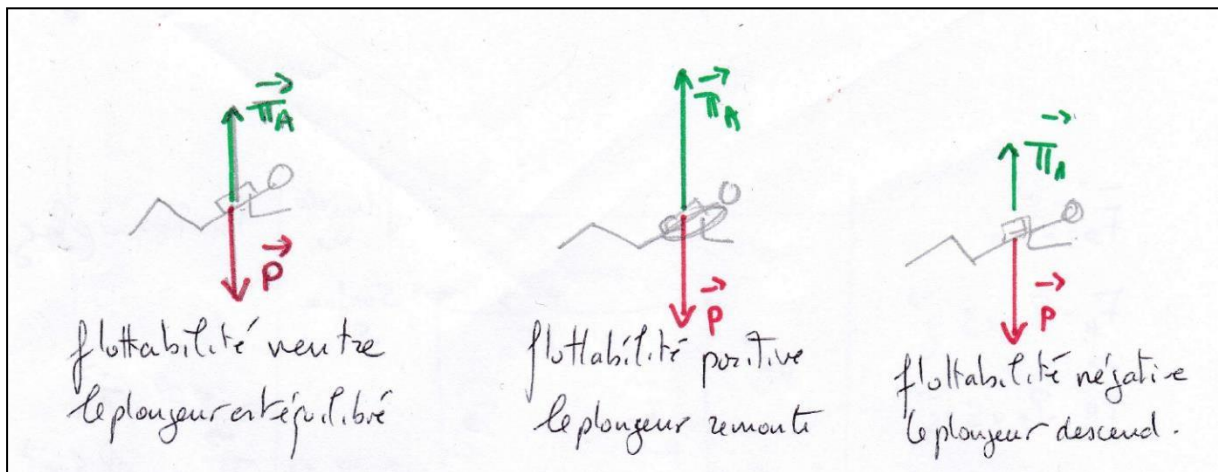 π⃗A
P⃗
flottabilité neutre
le plongeur est équilibré
π⃗A
P⃗
flottabilité positive
le plongeur remonte
π⃗A
P⃗
flottabilité négative
le plongeur descend.